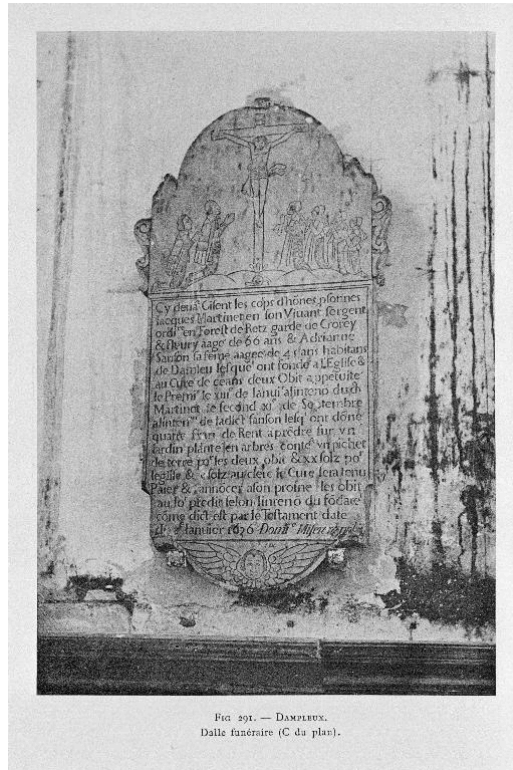 Cy deuāt Gisent les cops d'hōnes psonnes
Jacques Martinet en son Viuant sergent
ordi^re en Forest de Retz garde de Crorey
& fleury aagé de 66 ans & Adrianne
Sanson sa feme aagee de 4 ans habitans
de Dampleu lesque ont fondé a L'Eglise &
au Curé de ceans deux Obit appetuité
le Premi^r le xiii^e de Ianui^r alinteno dudt
Martinet le second xi^e de Septembre
alinten^no de ladict sanson lesq^l ont doné
quatre de Rent aprēdre sur vn
iardin planté en arbres contē^t vn pichet
de terre po^r les deux obit & xx solz po^r
legise & solz au clerc le Curé sera tenu
Paier & annōcer a son prosne les obit
au io^r predit selon lintenō du fōdate^r
cōme dict est par le Testament daté
du Ianuier 1636
FIG 291. — DAMPLEUX.
Dalle funéraire (C du plan).